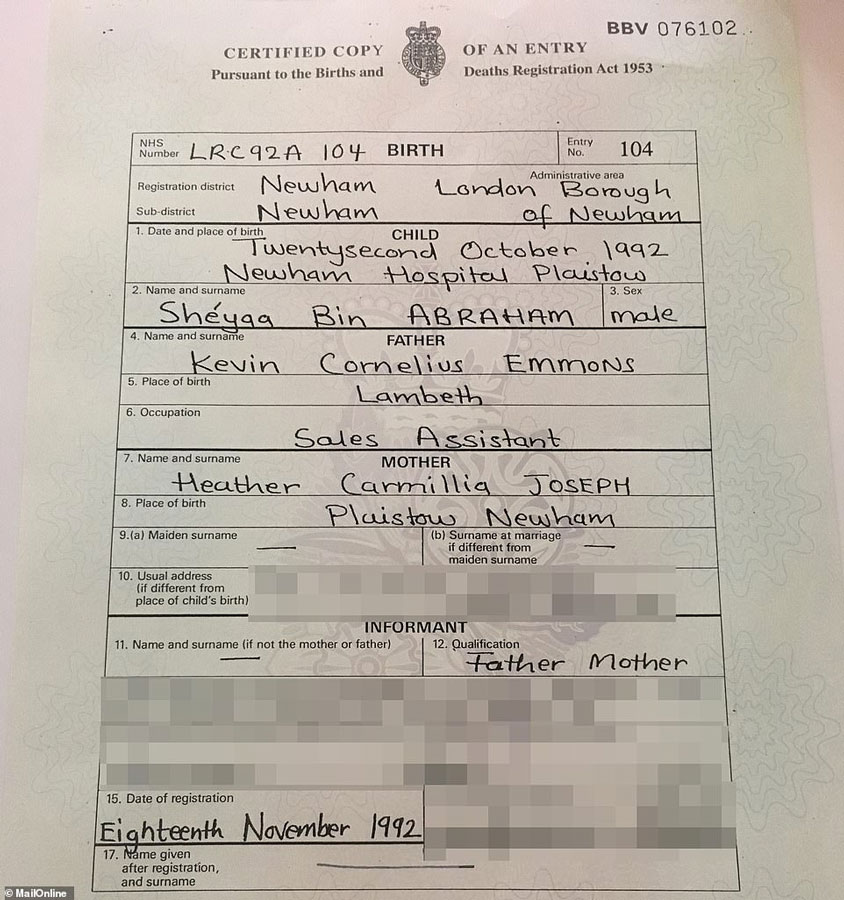 BBV 076102
CERTIFIED COPY OF AN ENTRY
Pursuant to the Births and Deaths Registration Act 1953
NHS Number LRC92A 104 BIRTH Entry No. 104
Registration district Newham Administrative area
London Borough
Sub-district Newham of Newham
1. Date and place of birth CHILD
Twentysecond October 1992
Newham Hospital Plaistow
2. Name and surname 3. Sex
Sheyaa Bin ABRAHAM male
4. Name and surname FATHER
Kevin Cornelius EMMONS
5. Place of birth
Lambeth
6. Occupation
Sales Assistant
7. Name and surname MOTHER
Heather Carmillia JOSEPH
8. Place of birth
Plaistow Newham
9.(a) Maiden surname — (b) Surname at marriage
if different from —
maiden surname
10. Usual address
(if different from
place of child's birth)
INFORMANT
11. Name and surname (if not the mother or father) 12. Qualification
— Father Mother
15. Date of registration
Eighteenth November 1992
17. Name given
after registration, —
and surname
© MailOnline